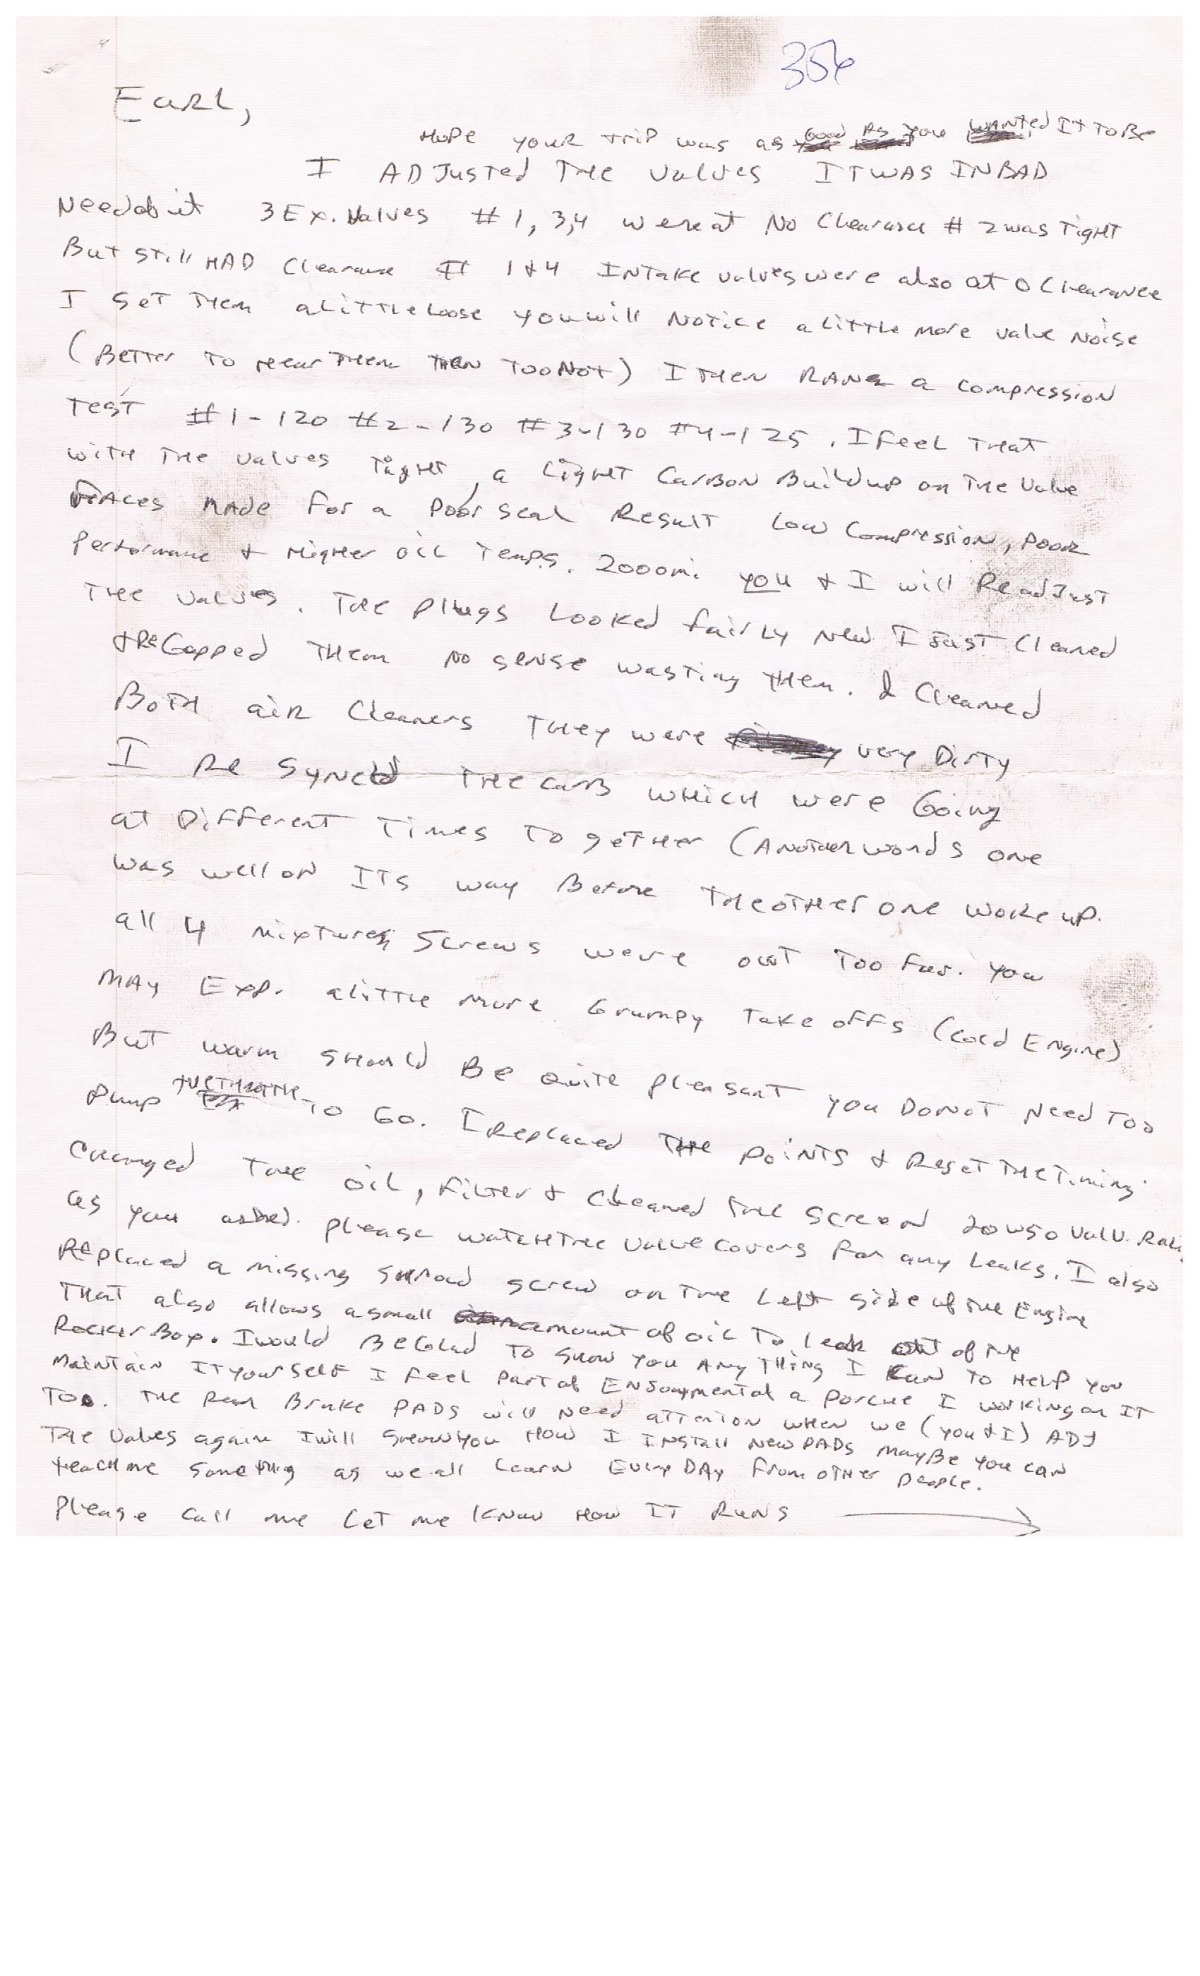 356
Earl,
Hope your trip was as Good As you WANTed It To Be
I ADJusted The valves IT WAS IN BAD
Need of it 3 Ex. Valves #1, 3,4 were at No Clearance # 2 was Tight
But still HAD Clearance # 1 & 4 INTake valves were also at 0 Clearance
I set Them a little loose you will Notice a little more valve Noise
(Better To Hear Them THEN Too Not) I THEN RAN a compression
TesT #1-120 #2-130 #3-130 #4-125. I feel THaT
with The valves TigHt, a LigHT Carbon Buildup on The Valve
FACes MADe For a Poor Seal Result Low Compression, Poor
Performance & Higher oil Temps. 2000mi you & I will ReadJust
THe Valves. The plugs Looked fairly New I Just Cleaned
& ReGapped THem No sense wasting them. I Cleaned
BoTH air Cleaners They were very Dirty
I Re Sync'd THe carb WHicH were Going
at DiFFerent Times To geTHer (ANoTHer words one
was well on ITs way Before THe oTHer one woke up.
all 4 mixtures Screws were out Too Far. You
MAy Exp. a little more Grumpy Take offs (Cold Engine)
But warm SHould Be quite pleasant you Do Not Need Too
Pump THe THrottle To Go. I Replaced THe PoiNTS & Reset THe Timing
CHanged THe oil, Filter & Cleaned THe Screen 20w50 Valv.
as you asked. Please watcH THe valve covers for any Leaks. I also
Replaced a missing SHroud screw on THe Left side of THe Engine
THat also allows a small amount of oil To leak out of THe
Rocker Box. I would Be Glad To SHow You ANy THing I Can To Help You
Maintain IT yourself I Feel Part of a Porche I working on IT
Too. THe Rear Brake PADS will Need attention when we (you & I) ADJ
THe Valves again I will SHow you How I INSTall New PADs MayBe You can
teacH me SomeTHing as we all Learn Every DAy From oTHer People.
Please Call me Let me Know How IT RUNS →